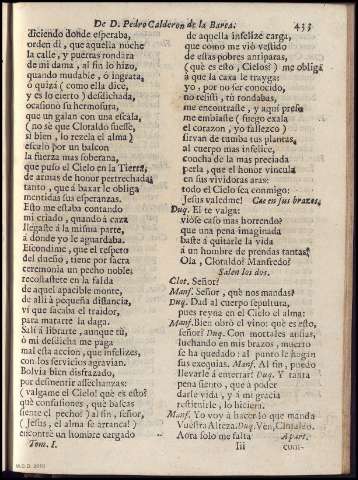 De D. Pedro Calderon de la Barca.
433
diciendo donde esperaba,
orden di, que aquella noche
la calle, y puertas rondara
de mi dama, al fin lo hizo,
quando mudable, ó ingrata,
ò quizá (como ella dice,
y es lo cierto) desdichada,
ocasionó su hermosura,
que un galan con una escala,
(no sè que Clotaldo fuesse,
si bien, lo rezela el alma)
escaló por un balcon
la fuerza mas soberana,
que puso el Cielo en la Tierra,
de armas de honor pertrechada;
tanto, que á baxar le obliga
mentidas sus esperanzas.
Esto me estaba contando
mi criado, quando à caza
llegaste á la misma parte,
á donde yo le aguardaba.
Escondime, que el respeto
del dueño, tiene por sacra
ceremonia un pecho noble:
recostastete en la falda
de aquel apacible monte,
de alli à pequeña distancia,
vi que sacaba el traidor,
para matarte la daga.
Salí à librarte, aunque tù,
ò mi desdicha me paga
mal esta accion, que infelices,
con los servicios agravian.
Bolvia bien disfrazado
por desmentir assechanzas:
(valgame el Cielo! què es esto?
què confusiones, què bascas
siente el pecho!) al fin, señor,
(Jesus, el alma se arranca!)
encontrè un hombre cargado
Tom. I.
de aquella infelize carga,
que como me viò vestido
de estas pobres antiparas,
(què es esto, Cielos!) me obligá
à que la caxa le trayga:
yo, por no ser conocido,
no resistí, tù rondabas,
me encontraste, y aqui preso
me embiaste (fuego exala
el corazon, yo fallezco)
sirvan de tumba tus plantas,
al cuerpo mas infelice,
concha de la mas preciada
perla, que el honor vincula
en sus vividoras aras:
todo el Cielo sea conmigo:
Jesus valedme! Cae en sus brazos.
Duq. El te valga:
viòse caso mas horrendo?
que una pena imaginada
baste á quitarle la vida
á un hombre de prendas tantas?
Ola, Clotaldo? Manfredo?
Salen los dos.
Clot. Señor?
Manf. Señor, què nos mandas?
Duq. Dad al cuerpo sepultura,
pues reyna en el Cielo el alma:
Manf. Bien obrò el vino: què es esto,
señor? Duq. Con mortales ansias,
luchando en mis brazos, muerto
se ha quedado: al punto le hagan
sus exequias. Manf. Al fin, puedo
llevarle á enterrar? Duq. Y tanta
pena siento, que à poder
darle vida, y á mi gracia
restituirle, lo hiciera.
Manf. Yo voy á hacer lo que manda
Vuestra Alteza. Duq. Ven, Clotaldo.
Aora solo me falta Apart.
Iii
com-